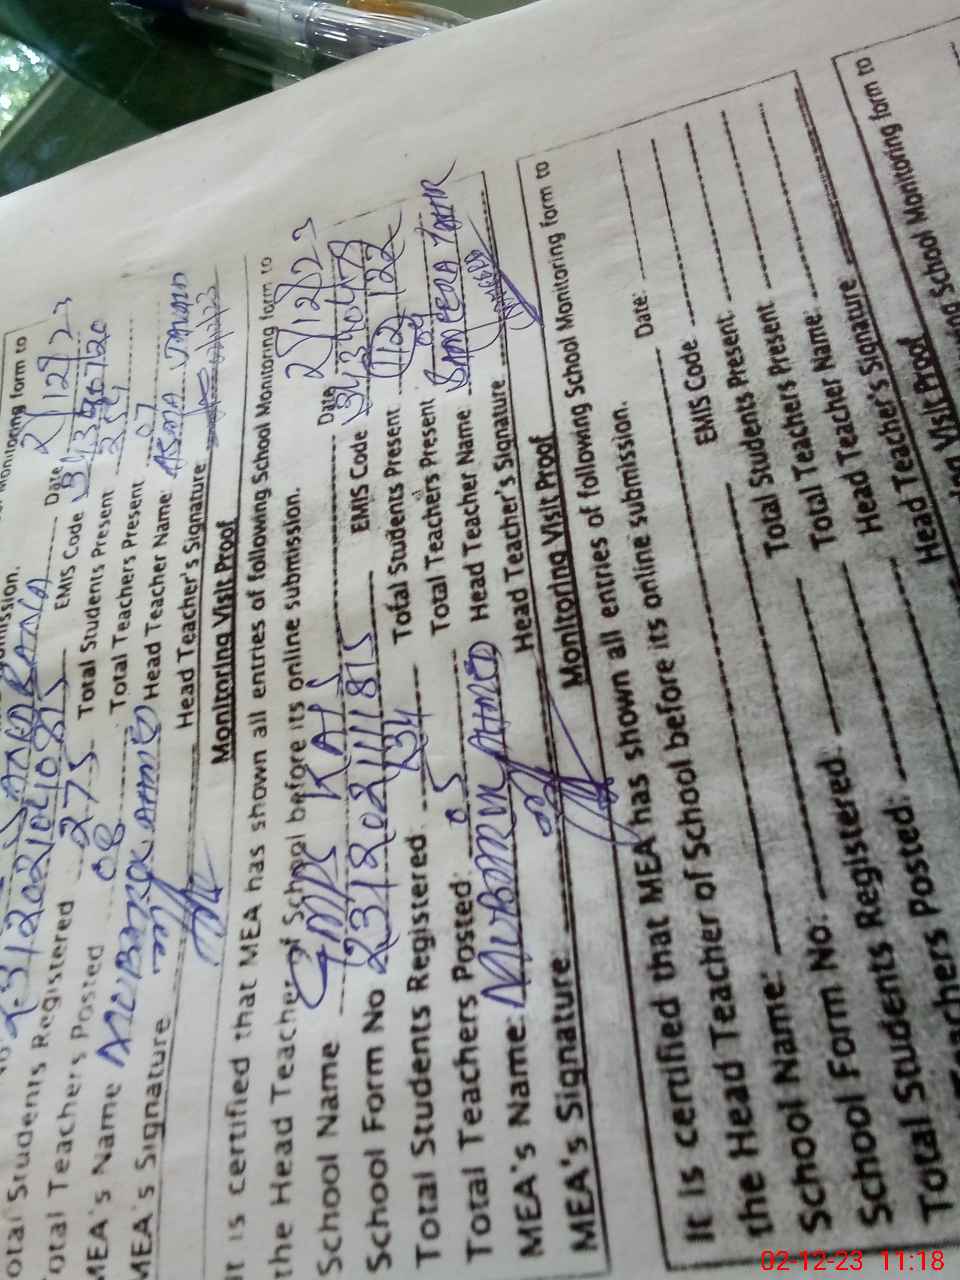 Monitoring form to
mission.
SANDA RANA Date 2/12/23
23120210410815 EMIS Code 34396720
Total Students Registered 275 Total Students Present 254
Total Teachers Posted 08 Total Teachers Present 07
MEA's Name MUBARIK AHMED Head Teacher Name: ASMA
MEA's Signature Head Teacher's Signature
Monitoring Visit Proof
It is certified that MEA has shown all entries of following School Monitoring form to
the Head Teacher of School before its online submission.
School Name GMPS KAIS Date 2/12/23
School Form No 23120211111815 EMIS Code
Total Students Registered 134 Total Students Present 112/122
Total Teachers Posted: 05 Total Teachers Present 04
MEA's Name: MUBARIK AHMED Head Teacher Name SAMEERA TAHIR
MEA's Signature: Head Teacher's Signature
Monitoring Visit Proof
It is certified that MEA has shown all entries of following School Monitoring form to
the Head Teacher of School before its online submission.
School Name: Date:
School Form No: EMIS Code
Students Registered Total Students Present
Total Students Total Teachers Present
Teachers Posted: Total Teacher Name:
Head Teacher Signature
Head Teacher's
Visit Proof
School Monitoring form to
02-12-23 11:18